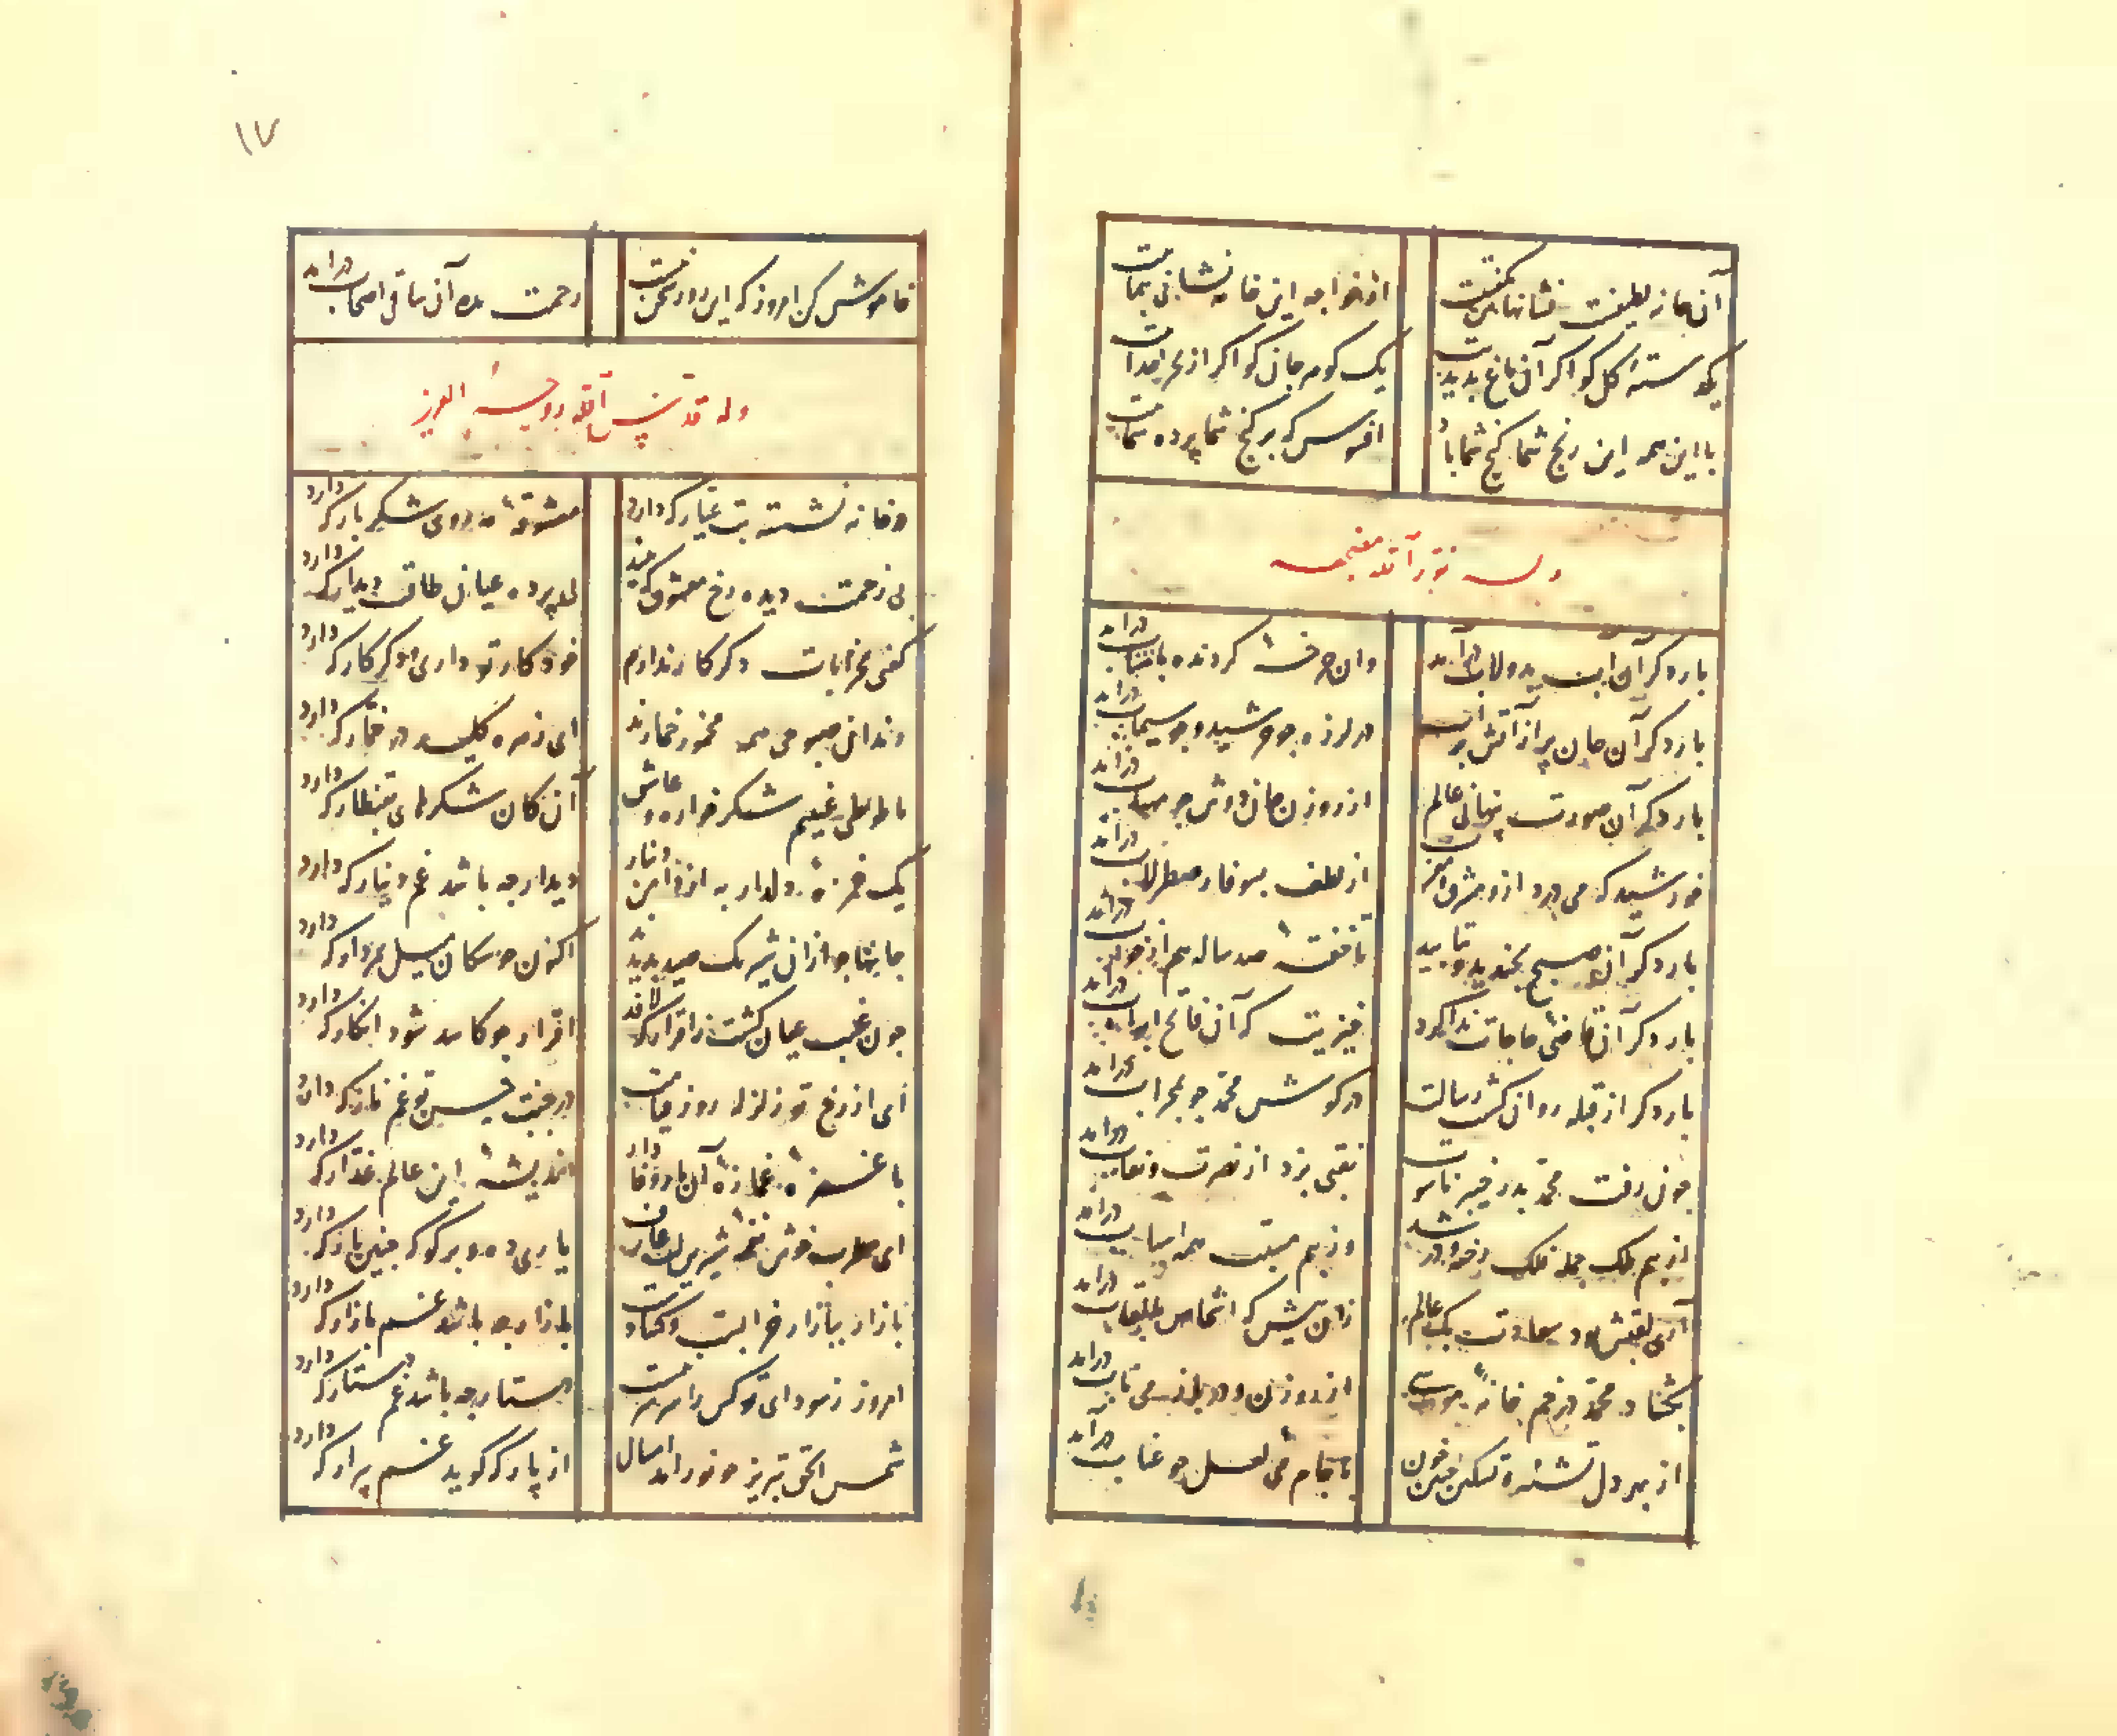 آن خانه لطیفست نشانهاش بگفتیت از خواجه این خانه نشانی بنمائیت
یکدسته گل کو اگر آن باغ بدیدیت یک گوهر جان کو اگر از بحر خدائیت
با این همه این رنج شما گنج شما باد افسوس که بر گنج شما پرده شمائیت
وله نور الله مضجعه
بار دگر آن آب بدولاب درآمد وان چرخهٔ گردنده باشتاب درآمد
بار دگر آن جان پر از آتش و از آب در لرزه چو خورشید و چو سیماب درآمد
بار دگر آن صورت پنهانی عالم از روزن جان دوش چو مهتاب درآمد
خورشید که می درد ازو مشرق و مغرب از لطف بسوفار صطرلاب درآمد
بار دگر آن صبح بخندید و بتابید تا خفتهٔ صد ساله هم از خواب درآمد
بار دگر آن قاضی حاجات ندا کرد خیزیت که آن فاتح ابواب درآمد
بار دگر از قبله روان گشت رسالت در گوش محمد چو بمحراب درآمد
چون رفت محمد بدر خیبر ناسوت نقبی بزد از نصرت و نقاب درآمد
از بیم ملک جمله فلک رخنه و در شد وز بیم مسبب همه اسباب درآمد
آری لقبش بود سعادت بک عالم زان پیش که اشخاص بالقاب درآمد
بگشاد محمد در خمخانهٔ غیبی از روزن و در باده می ناب درآمد
از بهر دل تشنه و تسکین چنین خون تا جام می لعل چو عناب درآمد
۱۷
خاموش کن امروز که این روز سخن نیست زحمت مده آن ساقی اصحاب درآمد
وله قدس الله روحه العزیز
در خانه نشسته بت عیار که دارد معشوقهٔ مه روی شکربار که دارد
بی زحمت دیده رخ معشوق که بیند بی پرده عیان طاقت دیدار که دارد
گفتی بخرابات دگر کار ندارم خود کار تو داری و دگر کار که دارد
رندان صبوحی همه مخمور خمارند ای زهره کلید در خمار که دارد
ما طوطی غیبیم شکرخواره و عاشق آن کان شکرهای بقنطار که دارد
یک غمزهٔ دلدار به از دامن دینار دیدار چه باشد غم دینار که دارد
جانها چو از آن شیر یک صید بدیدند اکنون چو سگان میل بمردار که دارد
چون غیب عیان گشت ز اقرار که لافد اقرار چو کاسد شود انکار که دارد
ای از رخ تو زلزله روز قیامت در جنت حسن تو غم نار که دارد
با غمزهٔ غمازهٔ آن یار وفادار اندیشهٔ این عالم غدار که دارد
ای مطرب خوش نغمهٔ شیرین لب عارف یاری ده و برگو که چنین یار که دارد
بازار ببازار خرابیت و کسادیست بازار چه باشد غم بازار که دارد
امروز ز سودای تو کس را سر سر نیست دستار چه باشد غم دستار که دارد
شمس الحق تبریز چو نور آمد امسال از پار که گوید غم پیرار که دارد